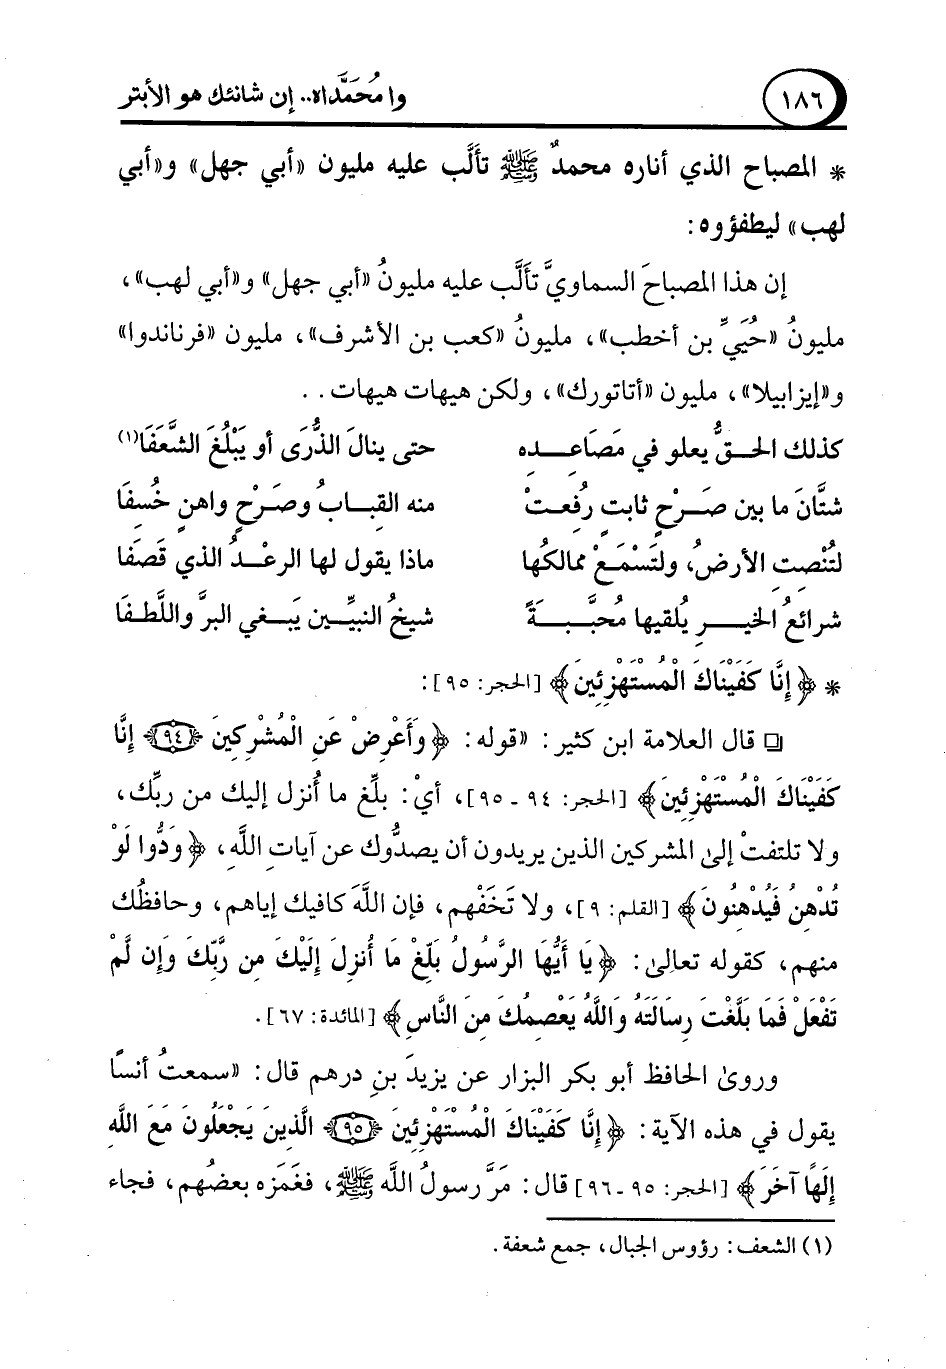 ١٨٦ وا مُحَمَّداه.. إن شانئك هو الأبتر
* المصباح الذي أناره محمدٌ ﷺ تألَّب عليه مليون «أبي جهل» و«أبي
لهب» ليطفؤوه:
إن هذا المصباحَ السماويَّ تألَّب عليه مليونُ «أبي جهل» و«أبي لهب»،
مليونُ «حُيَيِّ بن أخطب»، مليونُ «كعب بن الأشرف»، مليون «فرناندوا»
و«إيزابيلا»، مليون «أتاتورك»، ولكن هيهات هيهات..
كذلك الحــقُّ يعلو في مَصَاعِــدِه حتى ينالَ الذُّرَى أو يَبْلُغَ الشَّعَفَا(١)
شتَّانَ ما بين صَــرْحٍ ثابتٍ رُفِعتْ منه القِبــابُ وصَــرْحٍ واهنٍ خُسِفَا
لتُنْصِتِ الأرضُ، ولتَسْمَعْ ممالكُها ماذا يقول لها الرعْــدُ الذي قَصَفَا
شرائعُ الخيــرِ يُلقيها مُحبَّبــةً شيخُ النبيِّــين يَبــغي البرَّ واللَّطــفَا
* ﴿إِنَّا كَفَيْنَاكَ الْمُسْتَهْزِئِينَ﴾ [الحجر: ٩٥]:
❏ قال العلامة ابن كثير: «قوله: ﴿وَأَعْرِضْ عَنِ الْمُشْرِكِينَ ﴿٩٤﴾ إِنَّا
كَفَيْنَاكَ الْمُسْتَهْزِئِينَ﴾ [الحجر: ٩٤ - ٩٥]، أيْ: بلِّغ ما أُنزل إليك من ربِّك،
ولا تلتفتْ إلى المشركين الذين يريدون أن يصدُّوك عن آيات اللَّه، ﴿وَدُّوا لَوْ
تُدْهِنُ فَيُدْهِنُونَ﴾ [القلم: ٩]، ولا تَخَفْهم، فإن اللَّهَ كافيك إياهم، وحافظُك
منهم، كقوله تعالى: ﴿يَا أَيُّهَا الرَّسُولُ بَلِّغْ مَا أُنزِلَ إِلَيْكَ مِن رَّبِّكَ وَإِن لَّمْ
تَفْعَلْ فَمَا بَلَّغْتَ رِسَالَتَهُ وَاللَّهُ يَعْصِمُكَ مِنَ النَّاسِ﴾ [المائدة: ٦٧].
وروى الحافظ أبو بكر البزار عن يزيدَ بنِ درهم قال: «سمعتُ أنسًا
يقول في هذه الآية: ﴿إِنَّا كَفَيْنَاكَ الْمُسْتَهْزِئِينَ ﴿٩٥﴾ الَّذِينَ يَجْعَلُونَ مَعَ اللَّهِ
إِلَهًا آخَرَ﴾ [الحجر: ٩٥ - ٩٦] قال: مَرَّ رسولُ اللَّه ﷺ، فغَمَزه بعضُهم، فجاء
(١) الشعف: رؤوس الجبال، جمع شعفة.